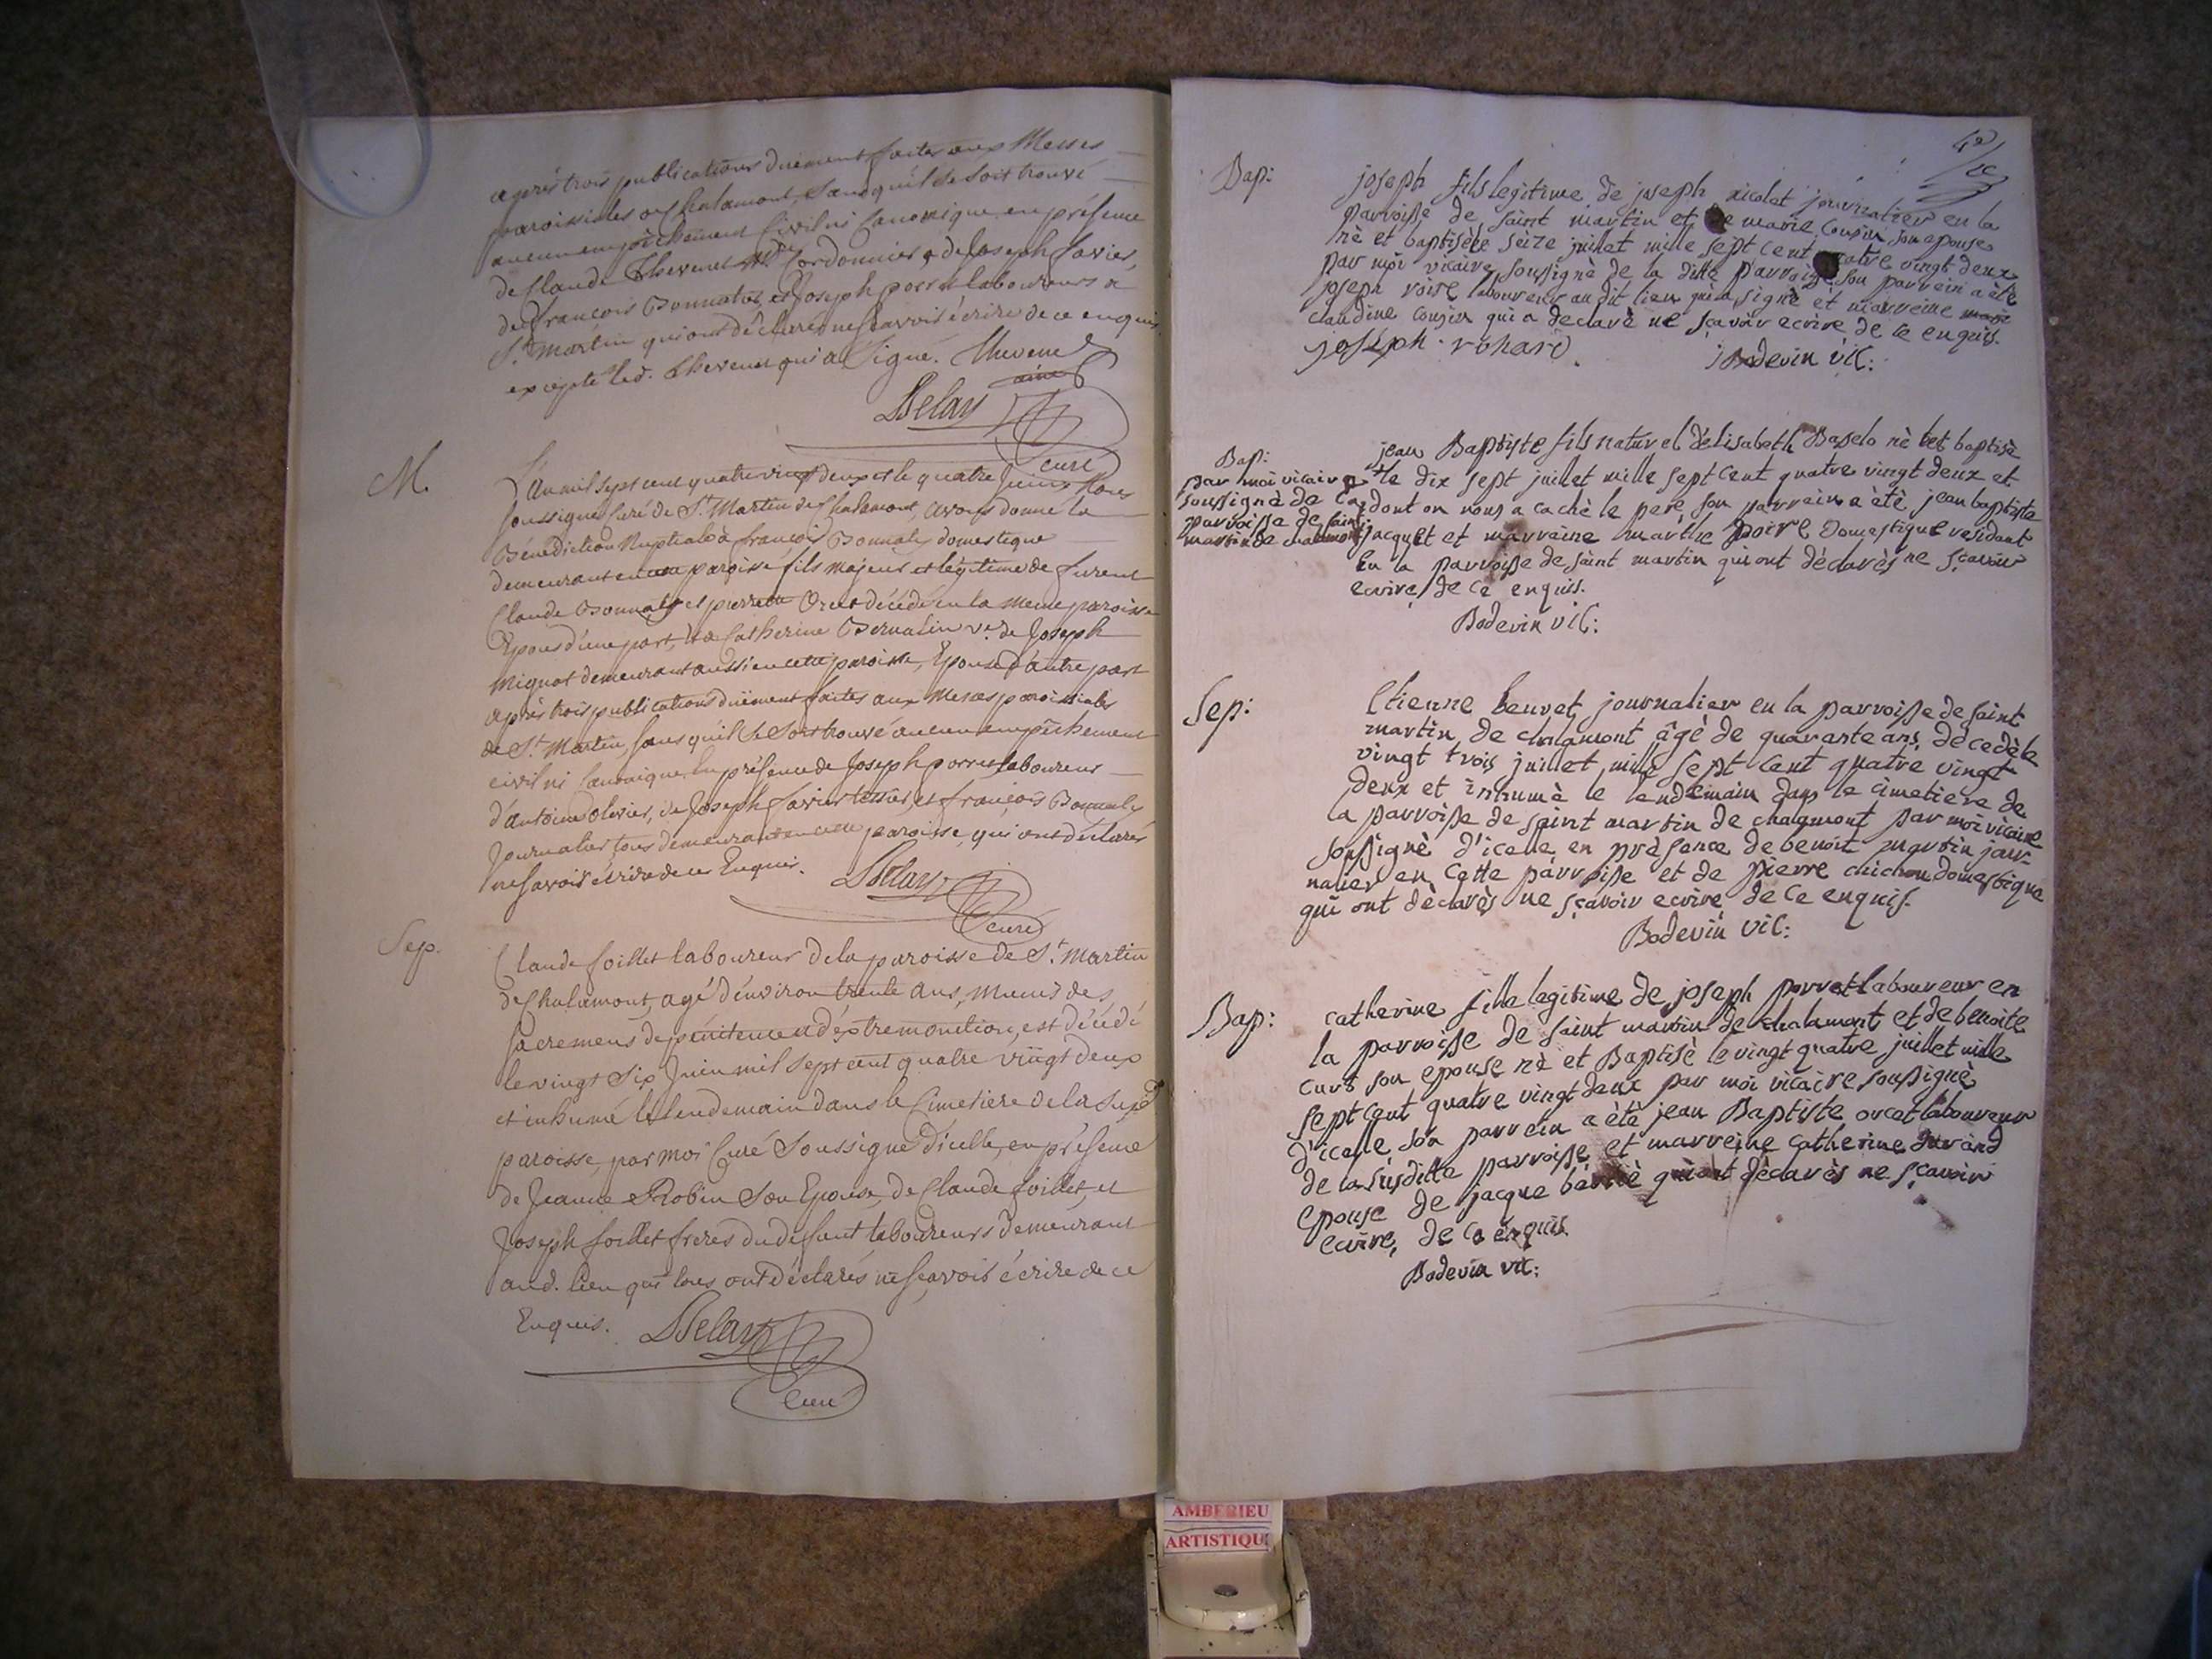 après trois publications duëment faites aux Messes
paroissiales de Chalamont, sans qu'il se soit trouvé
aucun empêchement Civil ni Canonique, en présence
de Claude Thevenet Md. Cordonnier, de Joseph favier,
de françois Bonnaty, et Joseph porret laboureurs a
St. Martin qui ont déclarés ne sçavoir écrire de ce enquis
excepté led. Thevenet qui a Signé. Thevenet
ainé
Delay
curé
M.
L'an mil sept cent quatre vingt deux et le quatre Juin Nous
soussigné Curé de St. Martin de Chalamont, avons donné la
Bénédiction Nuptiale à françois Bonnaty domestique
demeurant en cette paroisse fils majeur et légitime de furent
Claude Bonnaty et pierrette Orcet décédés en la meme paroisse
Epoux d'une part, et a Catherine Bernalin ve. de Joseph
Mignot demeurant aussi en cette paroisse, Epouse d'autre part
après trois publications duëment faites aux Messes paroissiales
de St. Martin, sans qu'il se soit trouvé aucun empêchement
civil ni Canonique, en présence de Joseph porret laboureur
d'antoine olivier, de Joseph favier tessier, et françois Bonnaty
Journalier tous demeurant en cette paroisse, qui ont déclarés
ne savoir écrire de ce Enquis.
Delay
curé
Sep.
Claude foillet laboureur de la paroisse de St. Martin
de Chalamont, agé d'environ trente ans, Munis des
sacremens de pénitence et d'extremonction, est décédé
le vingt Six Juin mil sept cent quatre vingt deux
et inhumé le lendemain dans le Cimetière de la Susd.
paroisse, par moi Curé Soussigné d'icelle, en présence
de Jeanne Robin son Epouse, de Claude foillet, et
Joseph foillet freres du défunt laboureurs demeurant
aud. lieu qui tous ont déclarés ne sçavoir écrire de ce
Enquis. Delay
Curé
Bap:
joseph fils legitime de joseph nicolet journalier en la
parroisse de saint martin et de marie Cousin son epouse
nè et baptisè le sèize juillet mille sept cent quatre vingt deux
par moi vicaire soussignè de la ditte parroisse son parrein a ètè
joseph voire laboureur au dit lieu qui a signè et marreine
claudine cousin qui a declarè ne sçavoir ecrire de ce enquis.
joseph rohard
Bodevin vic:
Bap:
jean Baptiste fils naturel d'elisabeth Baselo nè et baptisè
par moi vicaire
le dix sept juillet mille sept cent quatre vingt deux et
soussignè de la
dont on nous a cachè le pere, son parrein a ètè jean baptiste
parroisse de saint
martin de chalamont
jacquet et marraine marthe poire Domestique residant
En la parroisse de saint martin qui ont dèclarès ne sçavoir
ecrire de ce enquis.
Bodevin vic:
Sep:
Etienne beuvet, journalier en la parroisse de saint
martin de chalamont âgè de quarante ans dècedè le
vingt trois juillet mille sept cent quatre vingt
deux et inhumè le lendemain dans le cimetiere de
la parroisse de saint martin de chalamont par moi vicaire
soussignè d'icelle en prèsence de benoit martin jour
nalier en cette parroisse et de pierre chichon domestique
qui ont dèclarès ne sçavoir ecrire de ce enquis.
Bodevin vic:
Bap:
catherine fille legitime de joseph porret laboureur en
la parroisse de saint martin de chalamont et de benoite
curt son epouse nè et Baptisè le vingt quatre juillet mille
sept cent quatre vingt deux par moi vicaire soussignè
d'icelle son parrein a ètè jean Baptiste orcet laboureur
de la susditte parroisse et marreine catherine durand
epouse de jacque qui ont dèclarès ne sçavoir
ecrire, de ce enquis
Bodevin vic:
AMBERIEU
ARTISTIQU